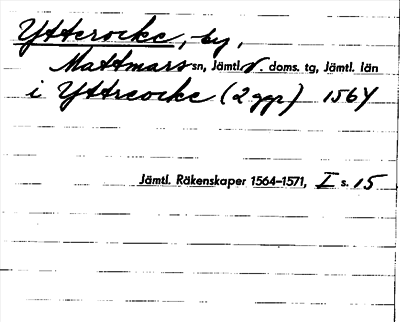 Ytterocke, by,
Mattmars sn, Jämtl. v. doms. tg, Jämtl. län
i Yttreocke (2 ggr) 1564
Jämtl. Räkenskaper 1564–1571, I s. 15